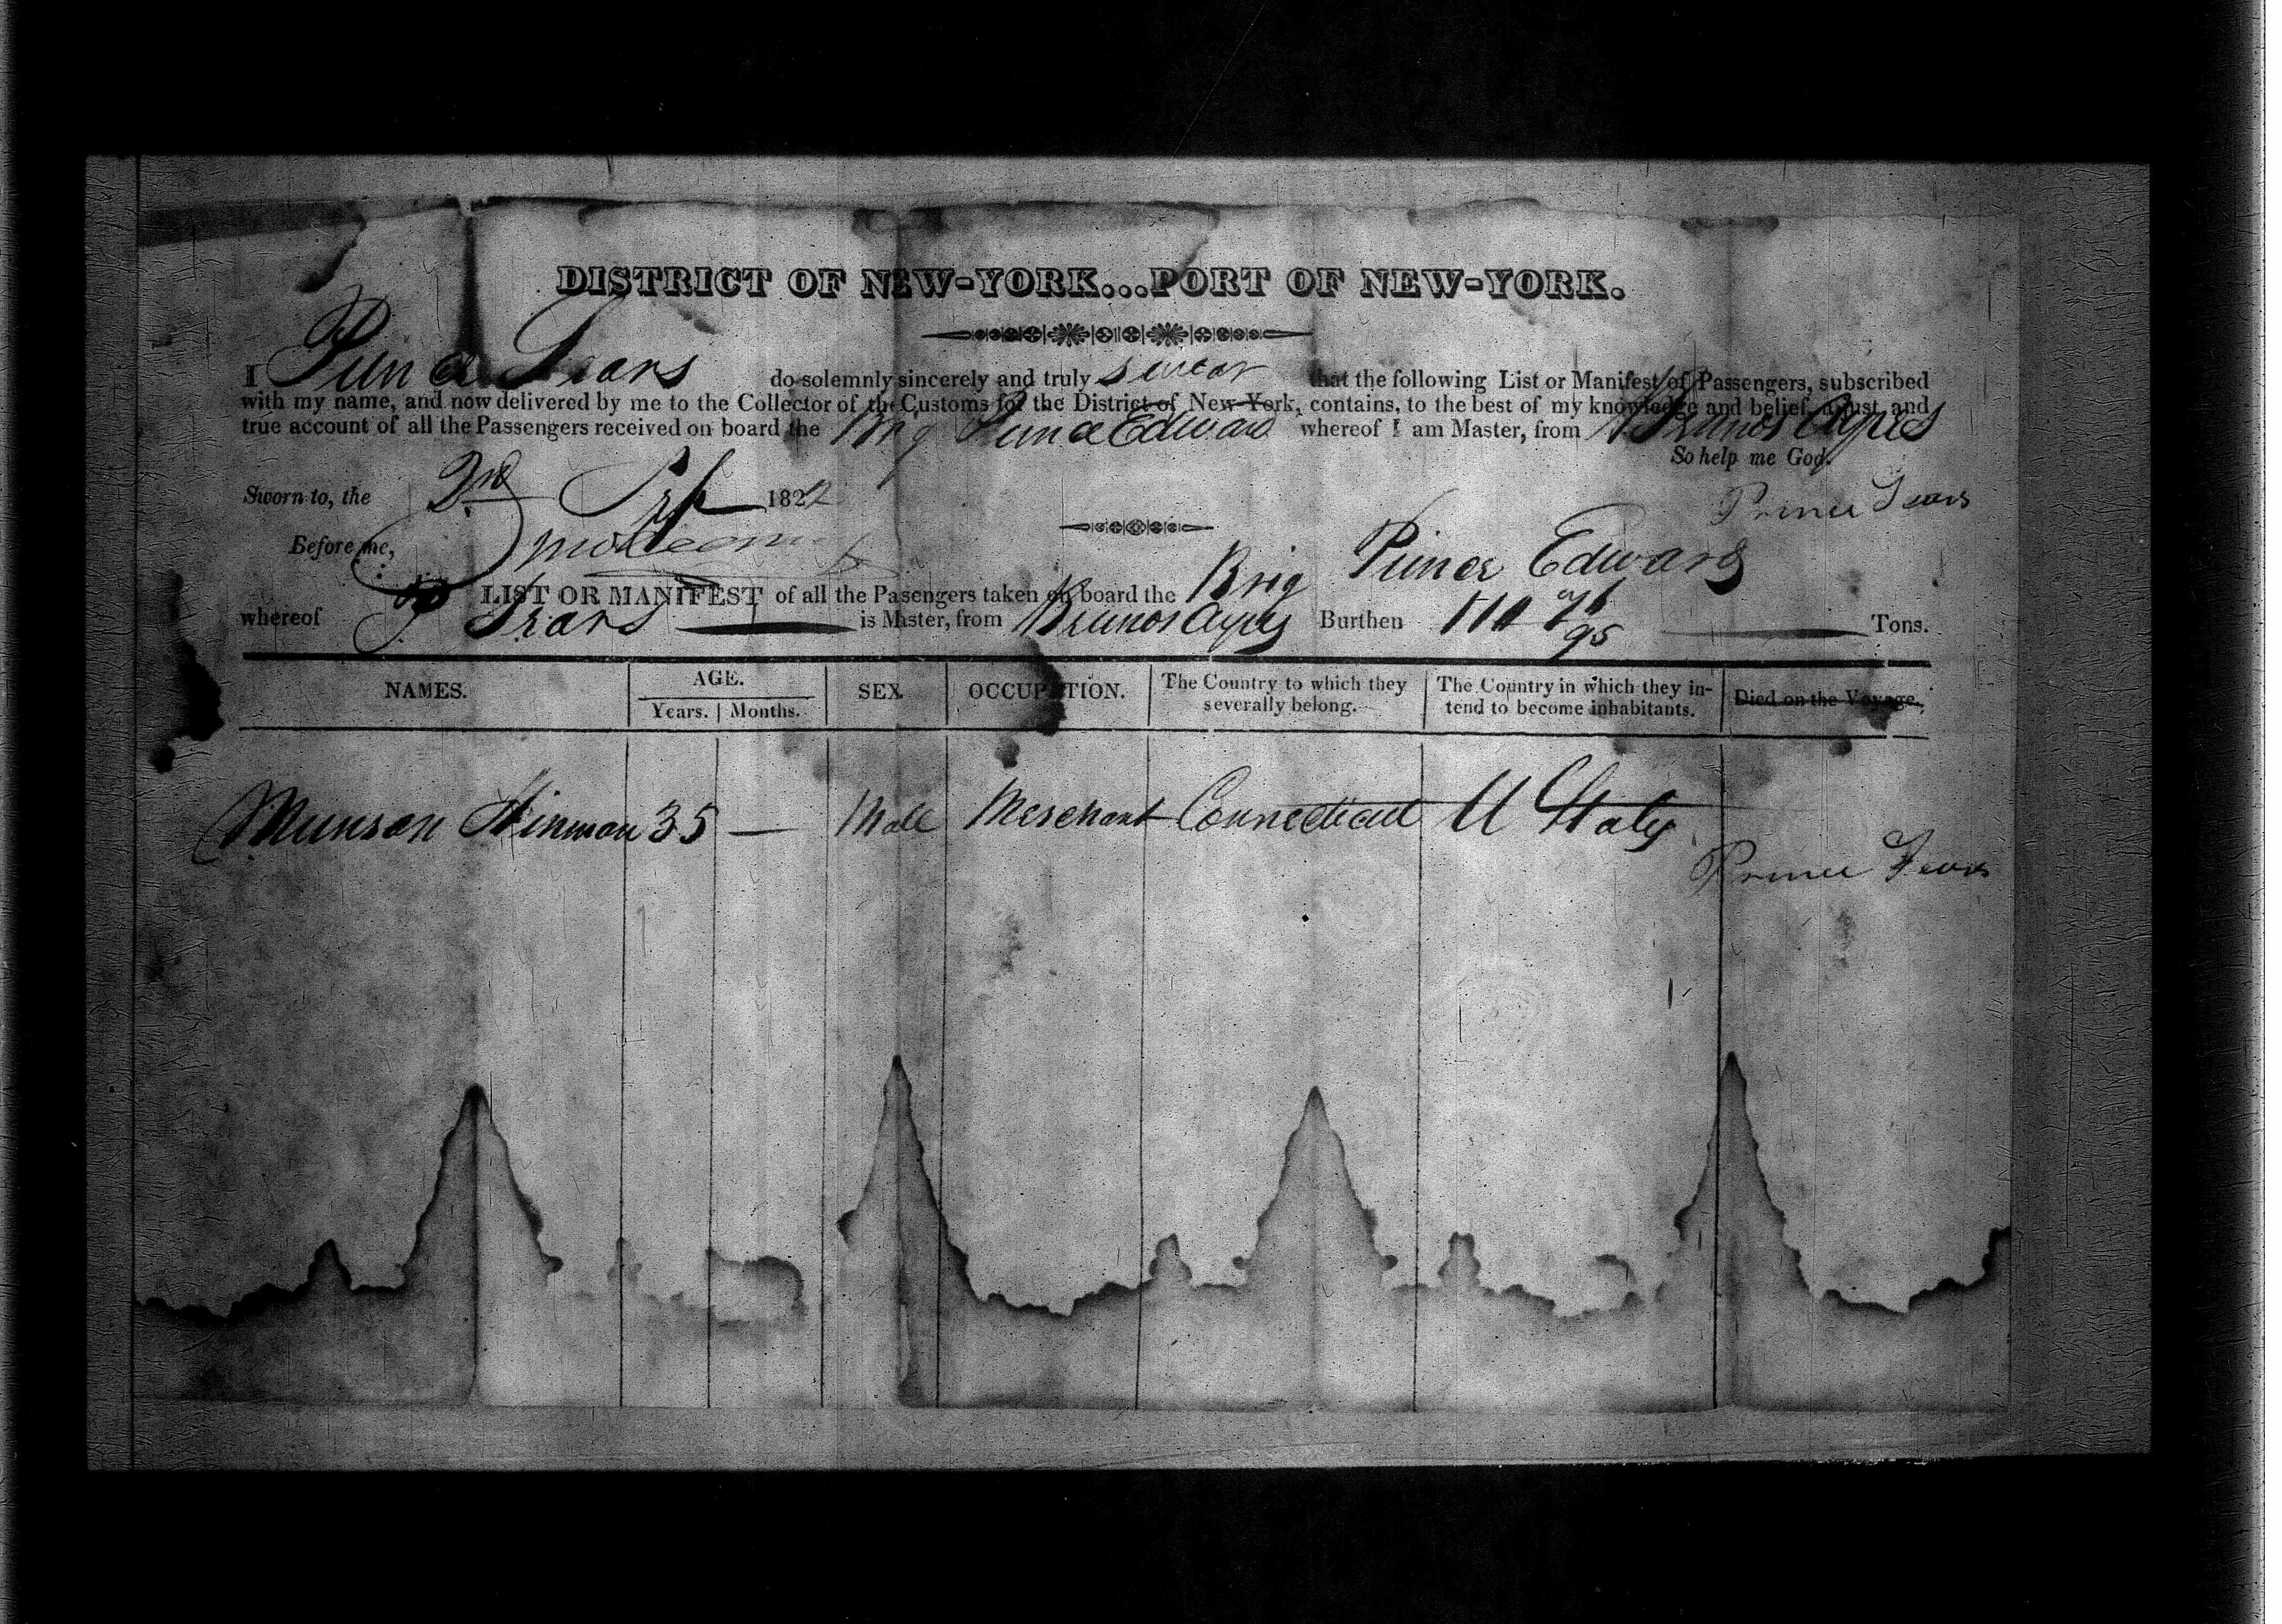 DISTRICT OF NEW-YORK...PORT OF NEW-YORK.
I Prince Sears do solemnly sincerely and truly swear that the following List or Manifest of Passengers, subscribed
with my name, and now delivered by me to the Collector of the Customs for the District of New-York, contains, to the best of my knowledge and belief, a just and
true account of all the Passengers received on board the Brig Prince Edward whereof I am Master, from Buenos Ayres
So help me God.
Sworn to, the 2nd Sep 1822
Prince Sears
Before me,
LIST OR MANIFEST of all the Pasengers taken on board the Brig Prince Edward
whereof P Sears is Master, from Buenos Ayres Burthen 95 Tons.
NAMES. AGE. Years. Months. SEX. OCCUPATION. The Country to which they severally belong. The Country in which they intend to become inhabitants. Died on the Voyage.
Munson Hinman 35 — Male Merchant Connecticut U States
Prince Sears